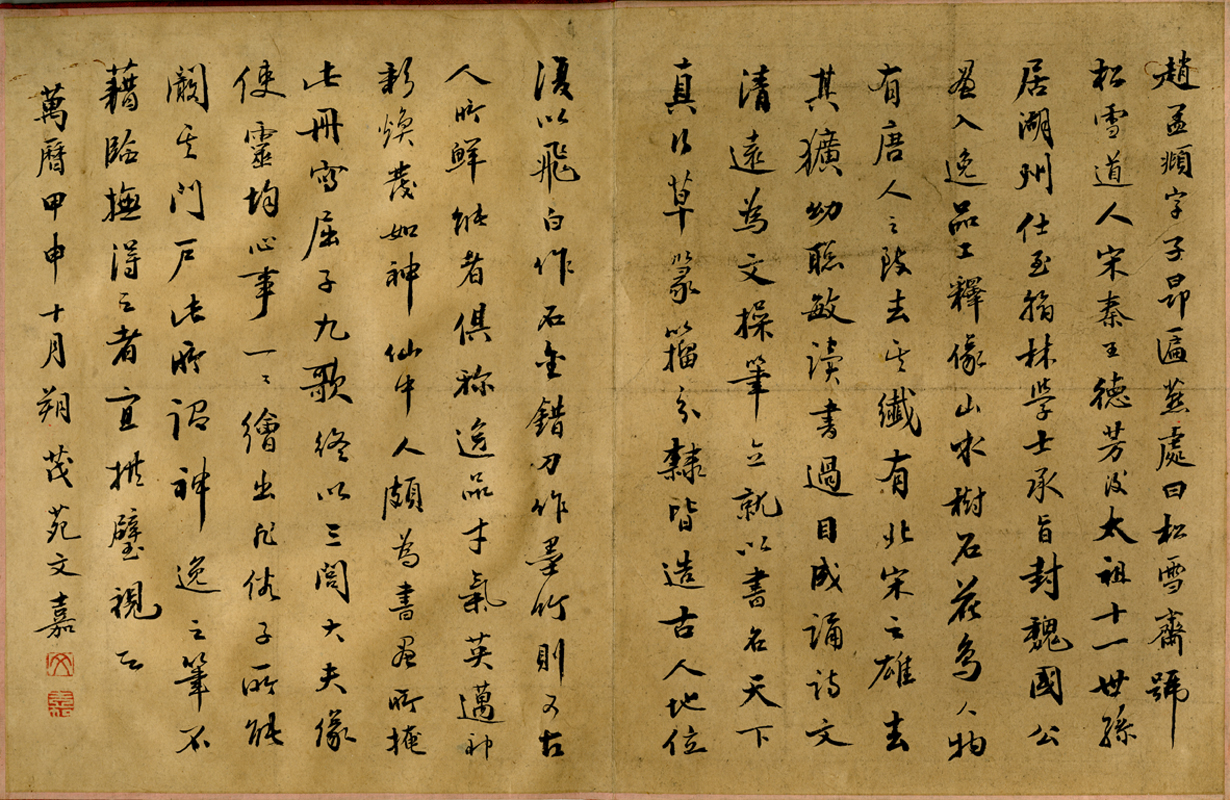 趙孟頫字子昂匾燕處曰松雪齋號
松雪道人宋秦王德芳後太祖十一世孫
居湖州仕至翰林學士承旨封魏國公
畫入逸品工釋像山水樹石花鳥人物
有唐人之致去其纖有北宋之雄去
其獷幼聰敏讀書過目成誦詩文
清遠為文操筆立就以書名天下
真行草篆籀分隸皆造古人地位
復以飛白作石金錯刀作墨竹則又古
人所鮮能者俱稱逸品才氣英邁神
彩煥發如神仙中人頗為書畫所掩
此冊寫屈子九歌終以三閭大夫像
使靈均心事一一繪出非俗子所能
闞其門戶此所謂神逸之筆不
藉臨撫得之者宜拱璧視之
萬曆甲申十月朔茂苑文嘉
文
嘉